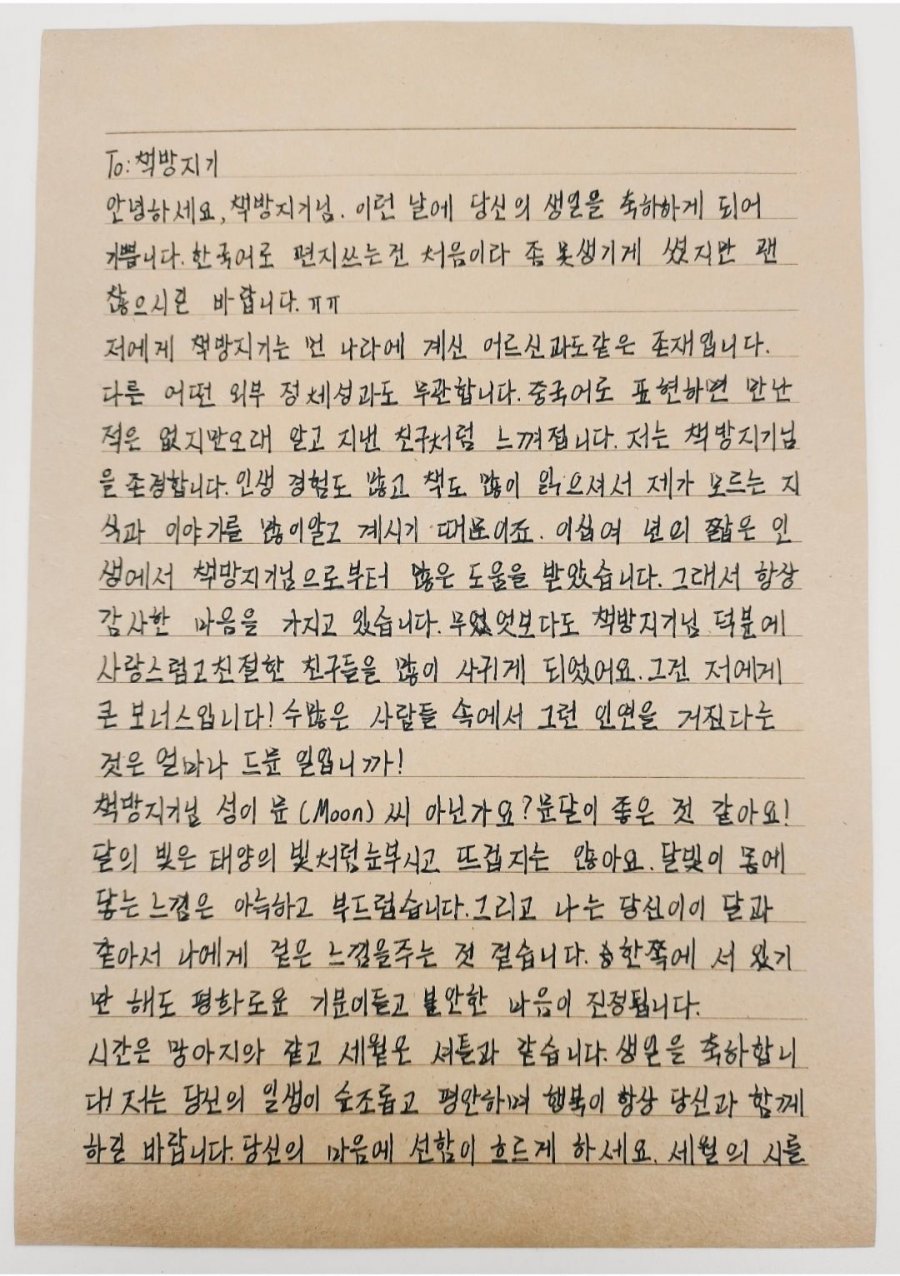 To: 책방지기
안녕하세요, 책방지기님. 이런 날에 당신의 생일을 축하하게 되어
기쁩니다. 한국어로 편지쓰는건 처음이다 좀 못생기게 썼지만 괜
찮으시길 바랍니다. ㅠㅠ
저에게 책방지기는 먼 나라에 계신 어르신과도같은 존재입니다.
다른 어떤 외부 정체성과도 무관합니다. 중국어로 표현하면 만난
적은 없지만오래 알고 지낸 친구처럼 느껴집니다. 저는 책방지기님
을 존경합니다. 인생 경험도 많고 책도 많이 읽으셔서 제가 모르는 지
식과 이야기를 많이알고 계시기 때문이죠. 이십여 년의 짧은 인
생에서 책방지기님으로부터 많은 도움을 받았습니다. 그래서 항상
감사한 마음을 가지고 있습니다. 무엇보다도 책방지기님 덕분에
사랑스럽고친절한 친구들을 많이 사귀게 되었어요. 그건 저에게
큰 보너스입니다! 수많은 사람들 속에서 그런 인연을 가진다는
것은 얼마나 드문 일입니까!
책방지기님 성이 문 (Moon) 씨 아닌가요? 문달이 좋은 것 같아요!
달의 빛은 태양의 빛처럼눈부시고 뜨겁지는 않아요. 달빛이 몸에
닿는 느낌은 아늑하고 부드럽습니다. 그리고 나는 당신이이 달과
같아서 나에게 같은 느낌을주는 것 같습니다. 한쪽에 서 있기
만 해도 평화로운 기분이들고 불안한 마음이 진정됩니다.
시간은 망아지와 같고 세월은 셔틀과 같습니다. 생일을 축하합니
다! 저는 당신의 일생이 순조롭고 평안하며 행복이 항상 당신과 함께
하길 바랍니다. 당신의 마음에 선함이 흐르게 하세요. 세월의 시를